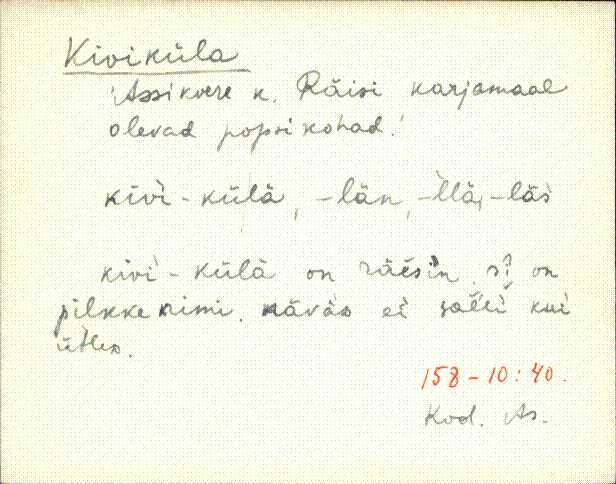 Kiviküla
'Assikvere k. Räisi karjamaal
olevad popsikohad.'
kivì-külä, -län, -`llä, -läs
kivì-külä on räesin, si̬i̬ on
pilkke nimi. näväD ei salli kui
ütleD.
158-10:40.
Kod. As.